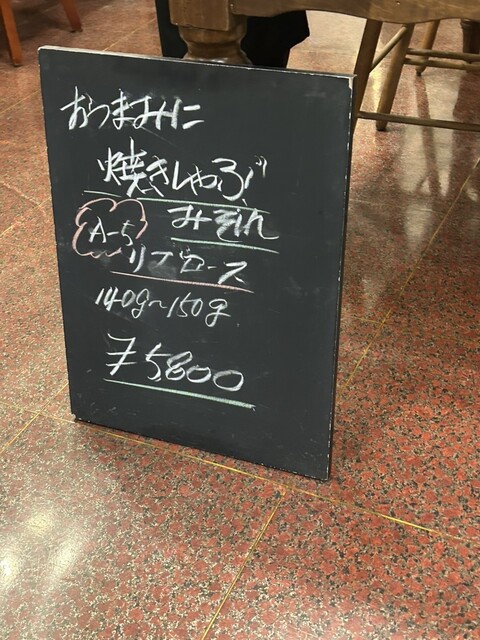 おつまみに
焼きしゃぶ
みぞれ
A-5
リブロース
140g～150g
¥5800